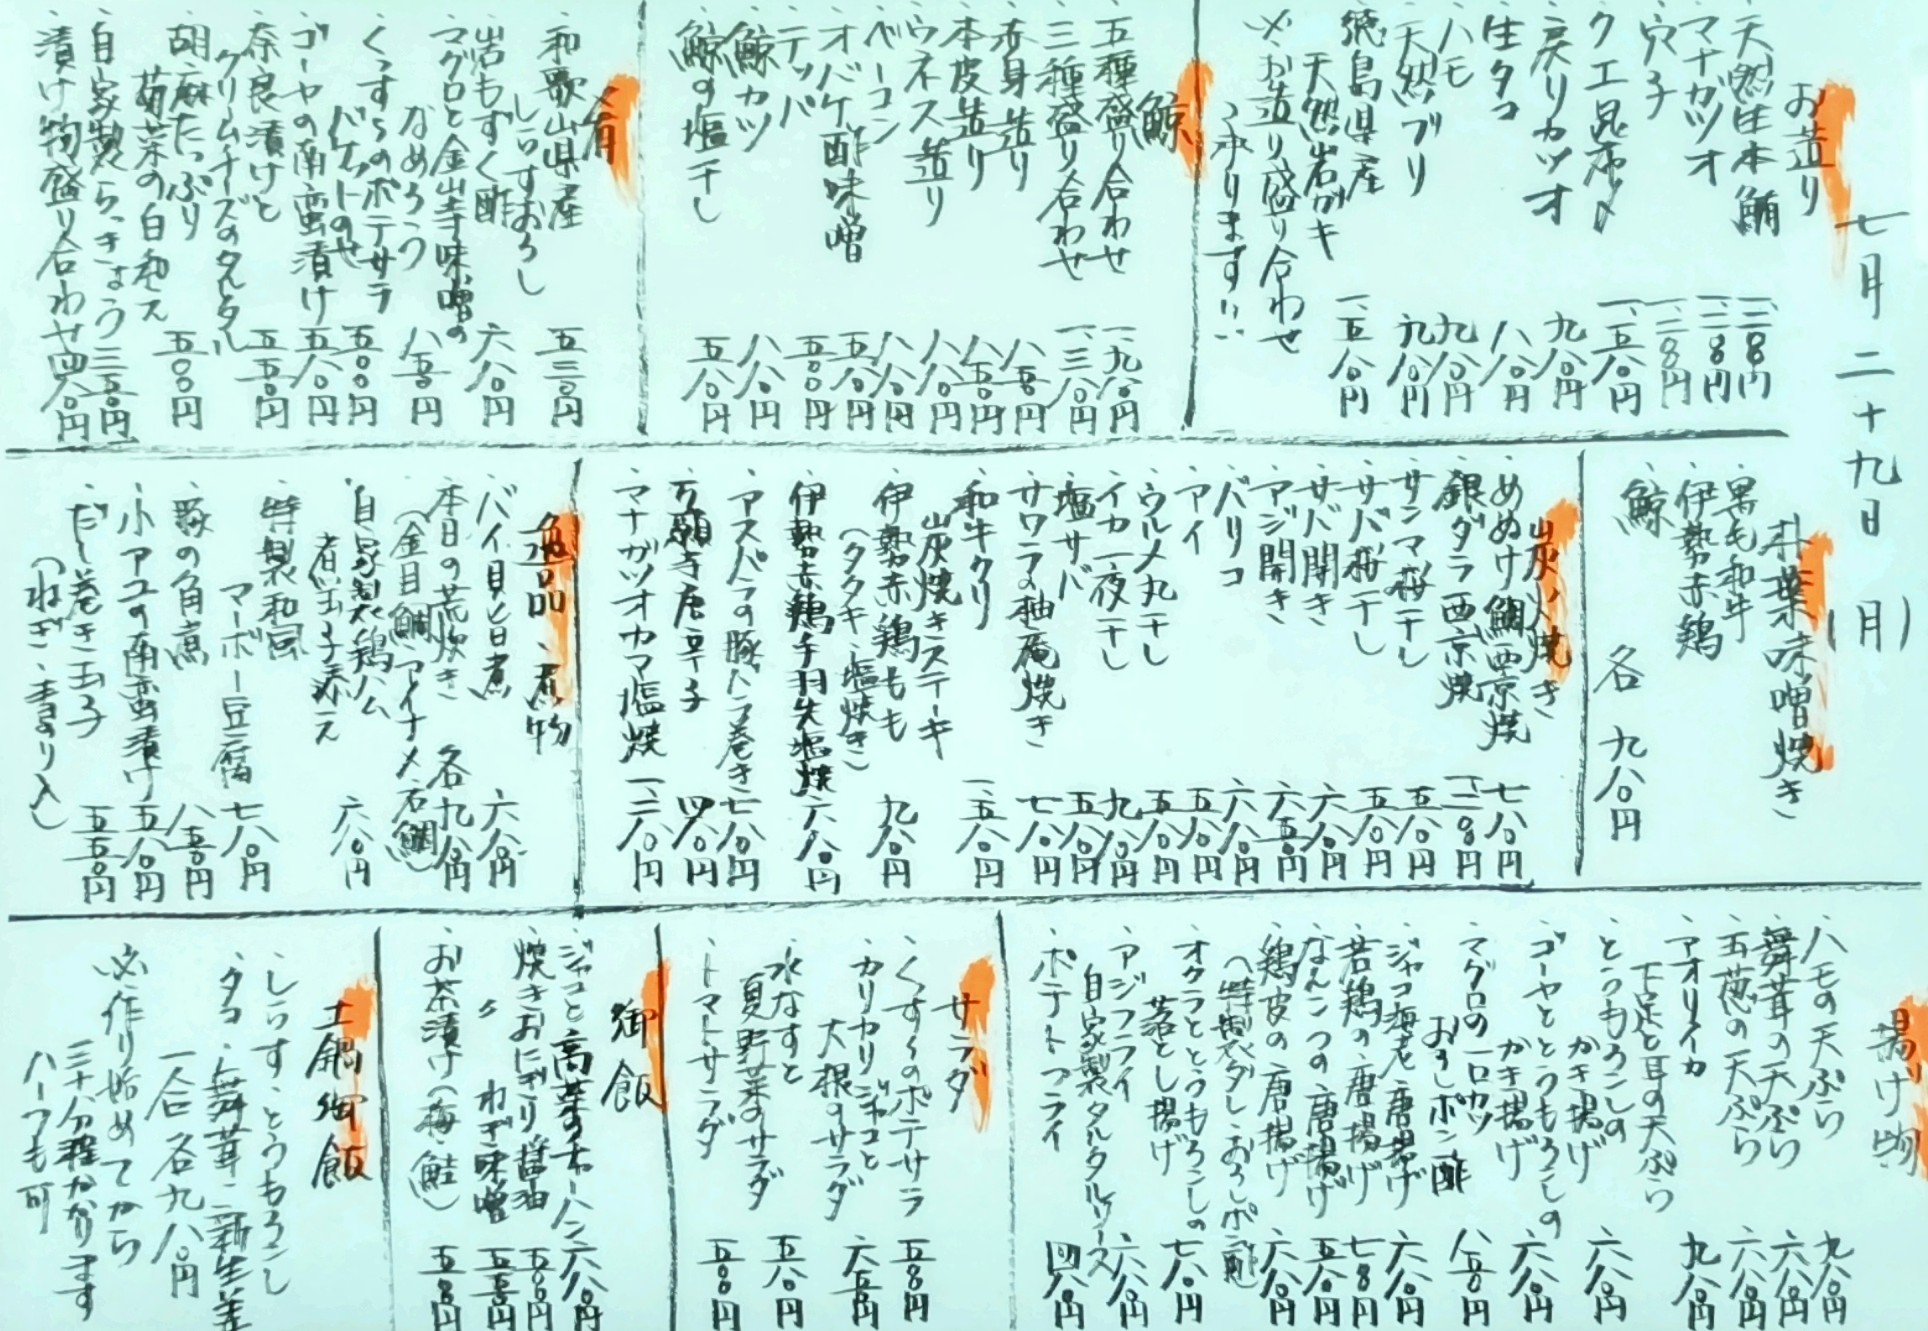 七月二十九日(月)
お造り
天然生本鮪 一、二八〇円
マナガツオ 一、二八〇円
穴子 一、二八〇円
クエ昆布〆 一、五八〇円
戻りカツオ 九八〇円
生タコ 八八〇円
ハモ 九八〇円
天然ブリ 九八〇円
徳島県産
天然岩ガキ 一、五八〇円
※お造り盛り合わせ
承ります
鯨
五種盛り合わせ 一、九八〇円
三種盛り合わせ 一、三八〇円
赤身造り 八五〇円
本皮造り 八五〇円
ウネス造り 八八〇円
ベーコン 八八〇円
オバケ酢味噌 五八〇円
テッパ 五〇〇円
鯨カツ 八八〇円
鯨の塩干し 五八〇円
肴
和歌山県産
しらすおろし 五三〇円
岩もずく酢 六八〇円
マグロと金山寺味噌の
なめろう 八五〇円
くっすらのポテサラ
バケットのせ 五〇〇円
ゴーヤの南蛮漬け 五八〇円
奈良漬けと
クリームチーズのタルタル 五五〇円
胡麻たっぷり
菊菜の白和え 五〇〇円
自家製らっきょう 三五〇円
漬け物盛り合わせ 四八〇円
朴葉味噌焼き
黒毛和牛
伊勢赤鶏
鯨
各 九八〇円
炭火焼き
めぬけ鯛西京焼 七八〇円
銀ダラ西京焼 一、二八〇円
サンマ梅干し 五八〇円
サバ梅干し 五八〇円
サバ開き 六八〇円
アジ開き 六五〇円
バリコ 六八〇円
アイ 五八〇円
ウルメ丸干し 五八〇円
イカ一夜干し 九八〇円
塩サバ 五八〇円
サワラの柚庵焼き 七八〇円
和牛クリ
炭焼きステーキ 一、五八〇円
伊勢赤鶏もも
(タタキ・塩焼き) 九八〇円
伊勢赤鶏手羽先塩焼 六八〇円
アスパラの豚トラ巻き 七八〇円
万願寺唐辛子 四八〇円
マナガツオカマ塩焼 一、二八〇円
逸品・煮物
バイ貝旨煮 六八〇円
本日の荒炊き 各九八〇円
(金目鯛・アイナメ・石鯛)
自家製鶏ハム
煮玉子添え 六八〇円
特製和風
マーボー豆腐 七八〇円
豚の角煮 八五〇円
小アユの南蛮漬け 五八〇円
だし巻き玉子 五五〇円
(ねぎ・青のり入)
揚げ物
ハモの天ぷら 九八〇円
舞茸の天ぷら 六八〇円
五葱の天ぷら 六八〇円
アオリイカ
下足と耳の天ぷら 九八〇円
とうもろこしの
かき揚げ 六八〇円
ゴーヤととうもろこしの
かき揚げ 六八〇円
マグロの一口カツ
おろしポン酢 八五〇円
ジャコ海老唐揚げ 六八〇円
若鶏の唐揚げ 七八〇円
なんこつの唐揚げ 五八〇円
鶏皮の唐揚げ 六八〇円
(特製ダレ・おろしポン酢)
オクラととうもろこしの
落とし揚げ 七八〇円
アジフライ
自家製タルタルソース 六八〇円
ポテトフライ 四八〇円
サラダ
くっすらポテサラ 五〇〇円
カリカリジャコと
大根のサラダ 六五〇円
水なすと
夏野菜のサラダ 五八〇円
トマトサラダ 五〇〇円
御飯
ジャコと高菜のチャーハン 六八〇円
焼きおにぎり醤油 五〇〇円
〃 ねぎ味噌 五五〇円
お茶漬け(梅・鮭) 五五〇円
土鍋御飯
しらすとうもろこし
タコ・舞茸・新生姜
一合 各九八〇円
※作り始めてから
三十分程かかります
ハーフも可